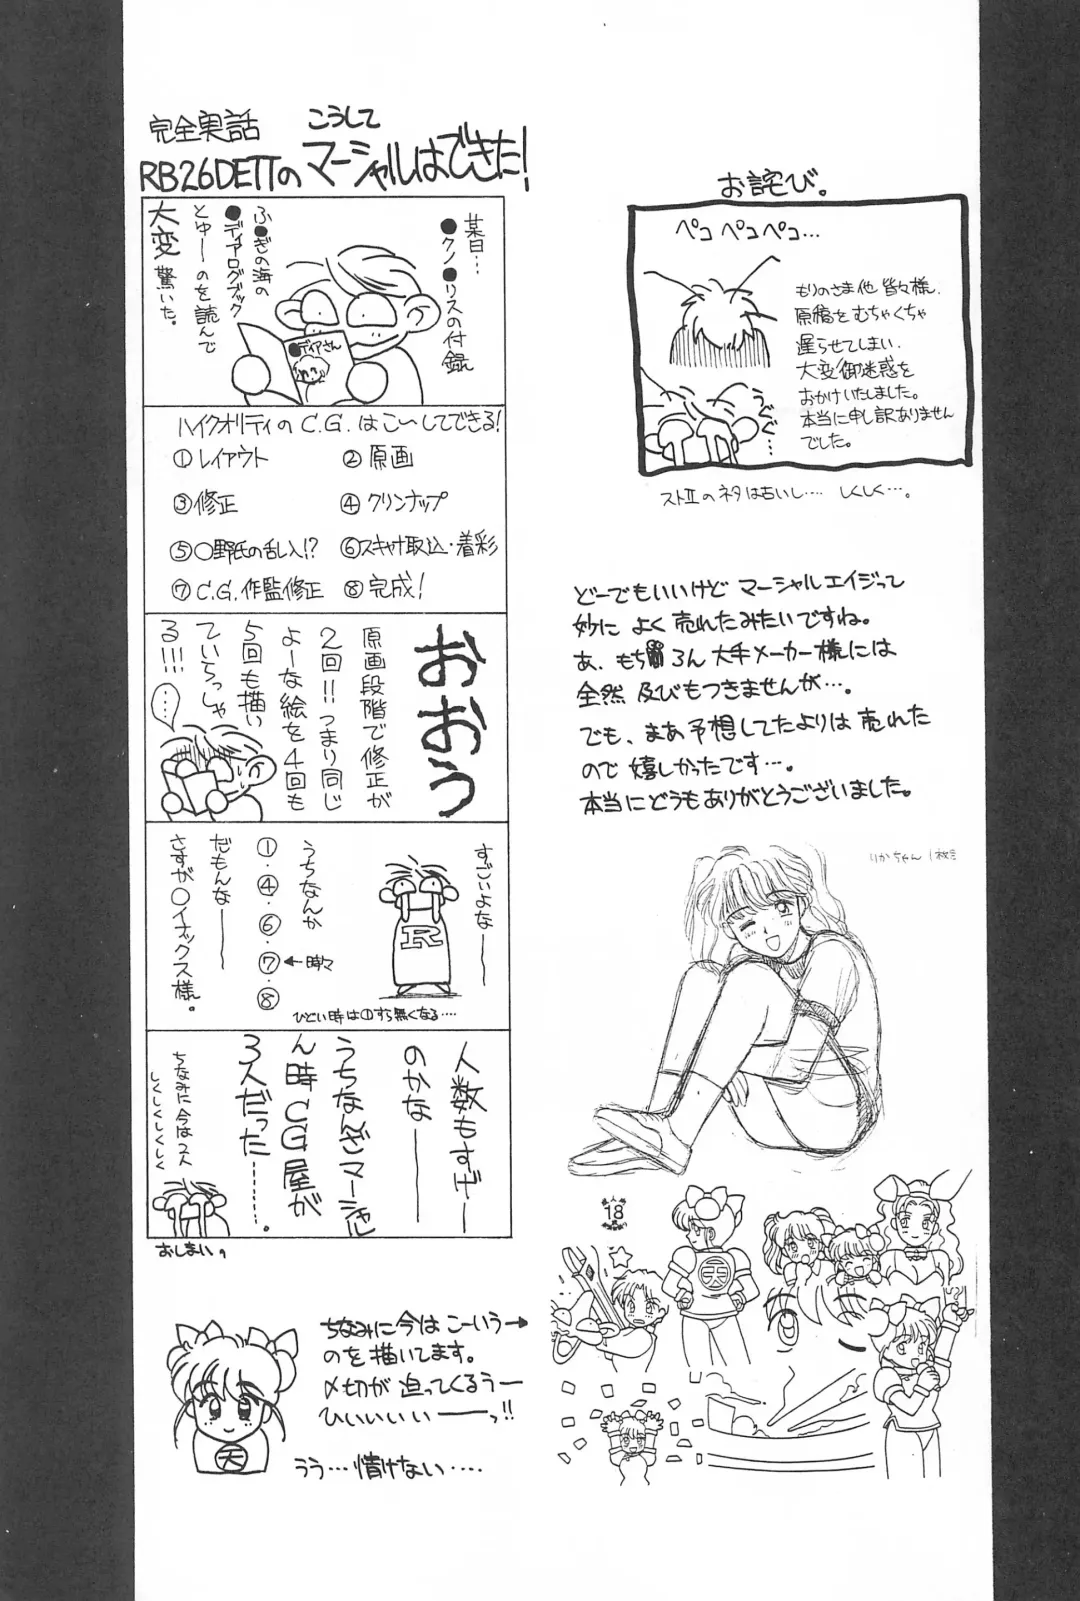 完全実話
こうして
RB26DETTの マーシャルはできた!
某日…
●クノ●リスの付録
ふ●ぎの海の
●ディアログブック
とゆーのを読んで
大変驚いた。
●ディアさん
ハイクオリティのC.G.はこ〜してできる!
①レイアウト ②原画
③修正 ④クリンナップ
⑤〇野氏の乱入!? ⑥スキャナ取込・着彩
⑦C.G.作監修正 ⑧完成!
おおう
原画段階で修正が
2回!!つまり同じ
よーな絵を4回も
5回も描い
ていらっしゃ
る!!!
……
すごいよなーー
うちなんか
①・④・⑥・⑦・⑧
←時々
だもんなーー
さすが〇イナックス様。
R
ひどい時は①すら無くなる….
人数もすげー
のかなーー
うちなんざマーシャ
ん時CG屋が
3人だった………。
ちなみに今は2人
しくしくしくしく
おしまい。
ちなみに今はこーいう→
のを描いてます。
〆切が迫ってくるうー
ひいいいいーーっ!!
うう…情けない…..
天
お詫び。
ペコペコペコ…
もりのさま他 皆々様、
原稿をむちゃくちゃ
遅らせてしまい、
大変御迷惑を
おかけいたしました。
本当に申し訳ありません
でした。
うぐぐ…
ストⅡのネタは古いし…. しくしく…。
どーでもいいけど マーシャルエイジって
妙に よく 売れたみたいですね。
あ、もちろん 大手メーカー様には
全然 及びもつきませんが…。
でも、まあ予想してたよりは 売れた
ので 嬉しかったです…。
本当にどうもありがとうございました。
りかちゃん
18
天